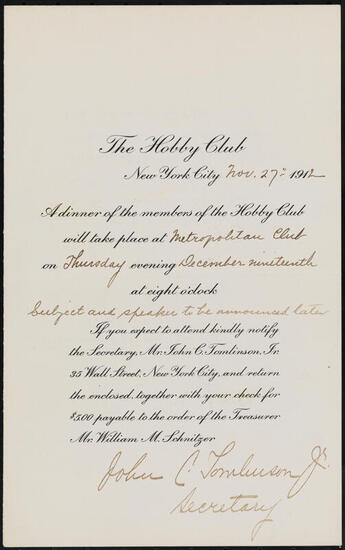 The Hobby Club
New York City Nov. 27th 1912
A dinner of the members of the Hobby Club
will take place at Metropolitan Club
on Thursday evening December nineteenth
at eight o'clock
Subject and speaker to be announced later
If you expect to attend kindly notify
the Secretary, Mr. John C. Tomlinson, Jr.
35 Wall Street, New York City, and return
the enclosed, together with your check for
$5.00 payable to the order of the Treasurer
Mr. William M. Schnitzer
John C. Tomlinson Jr.
Secretary